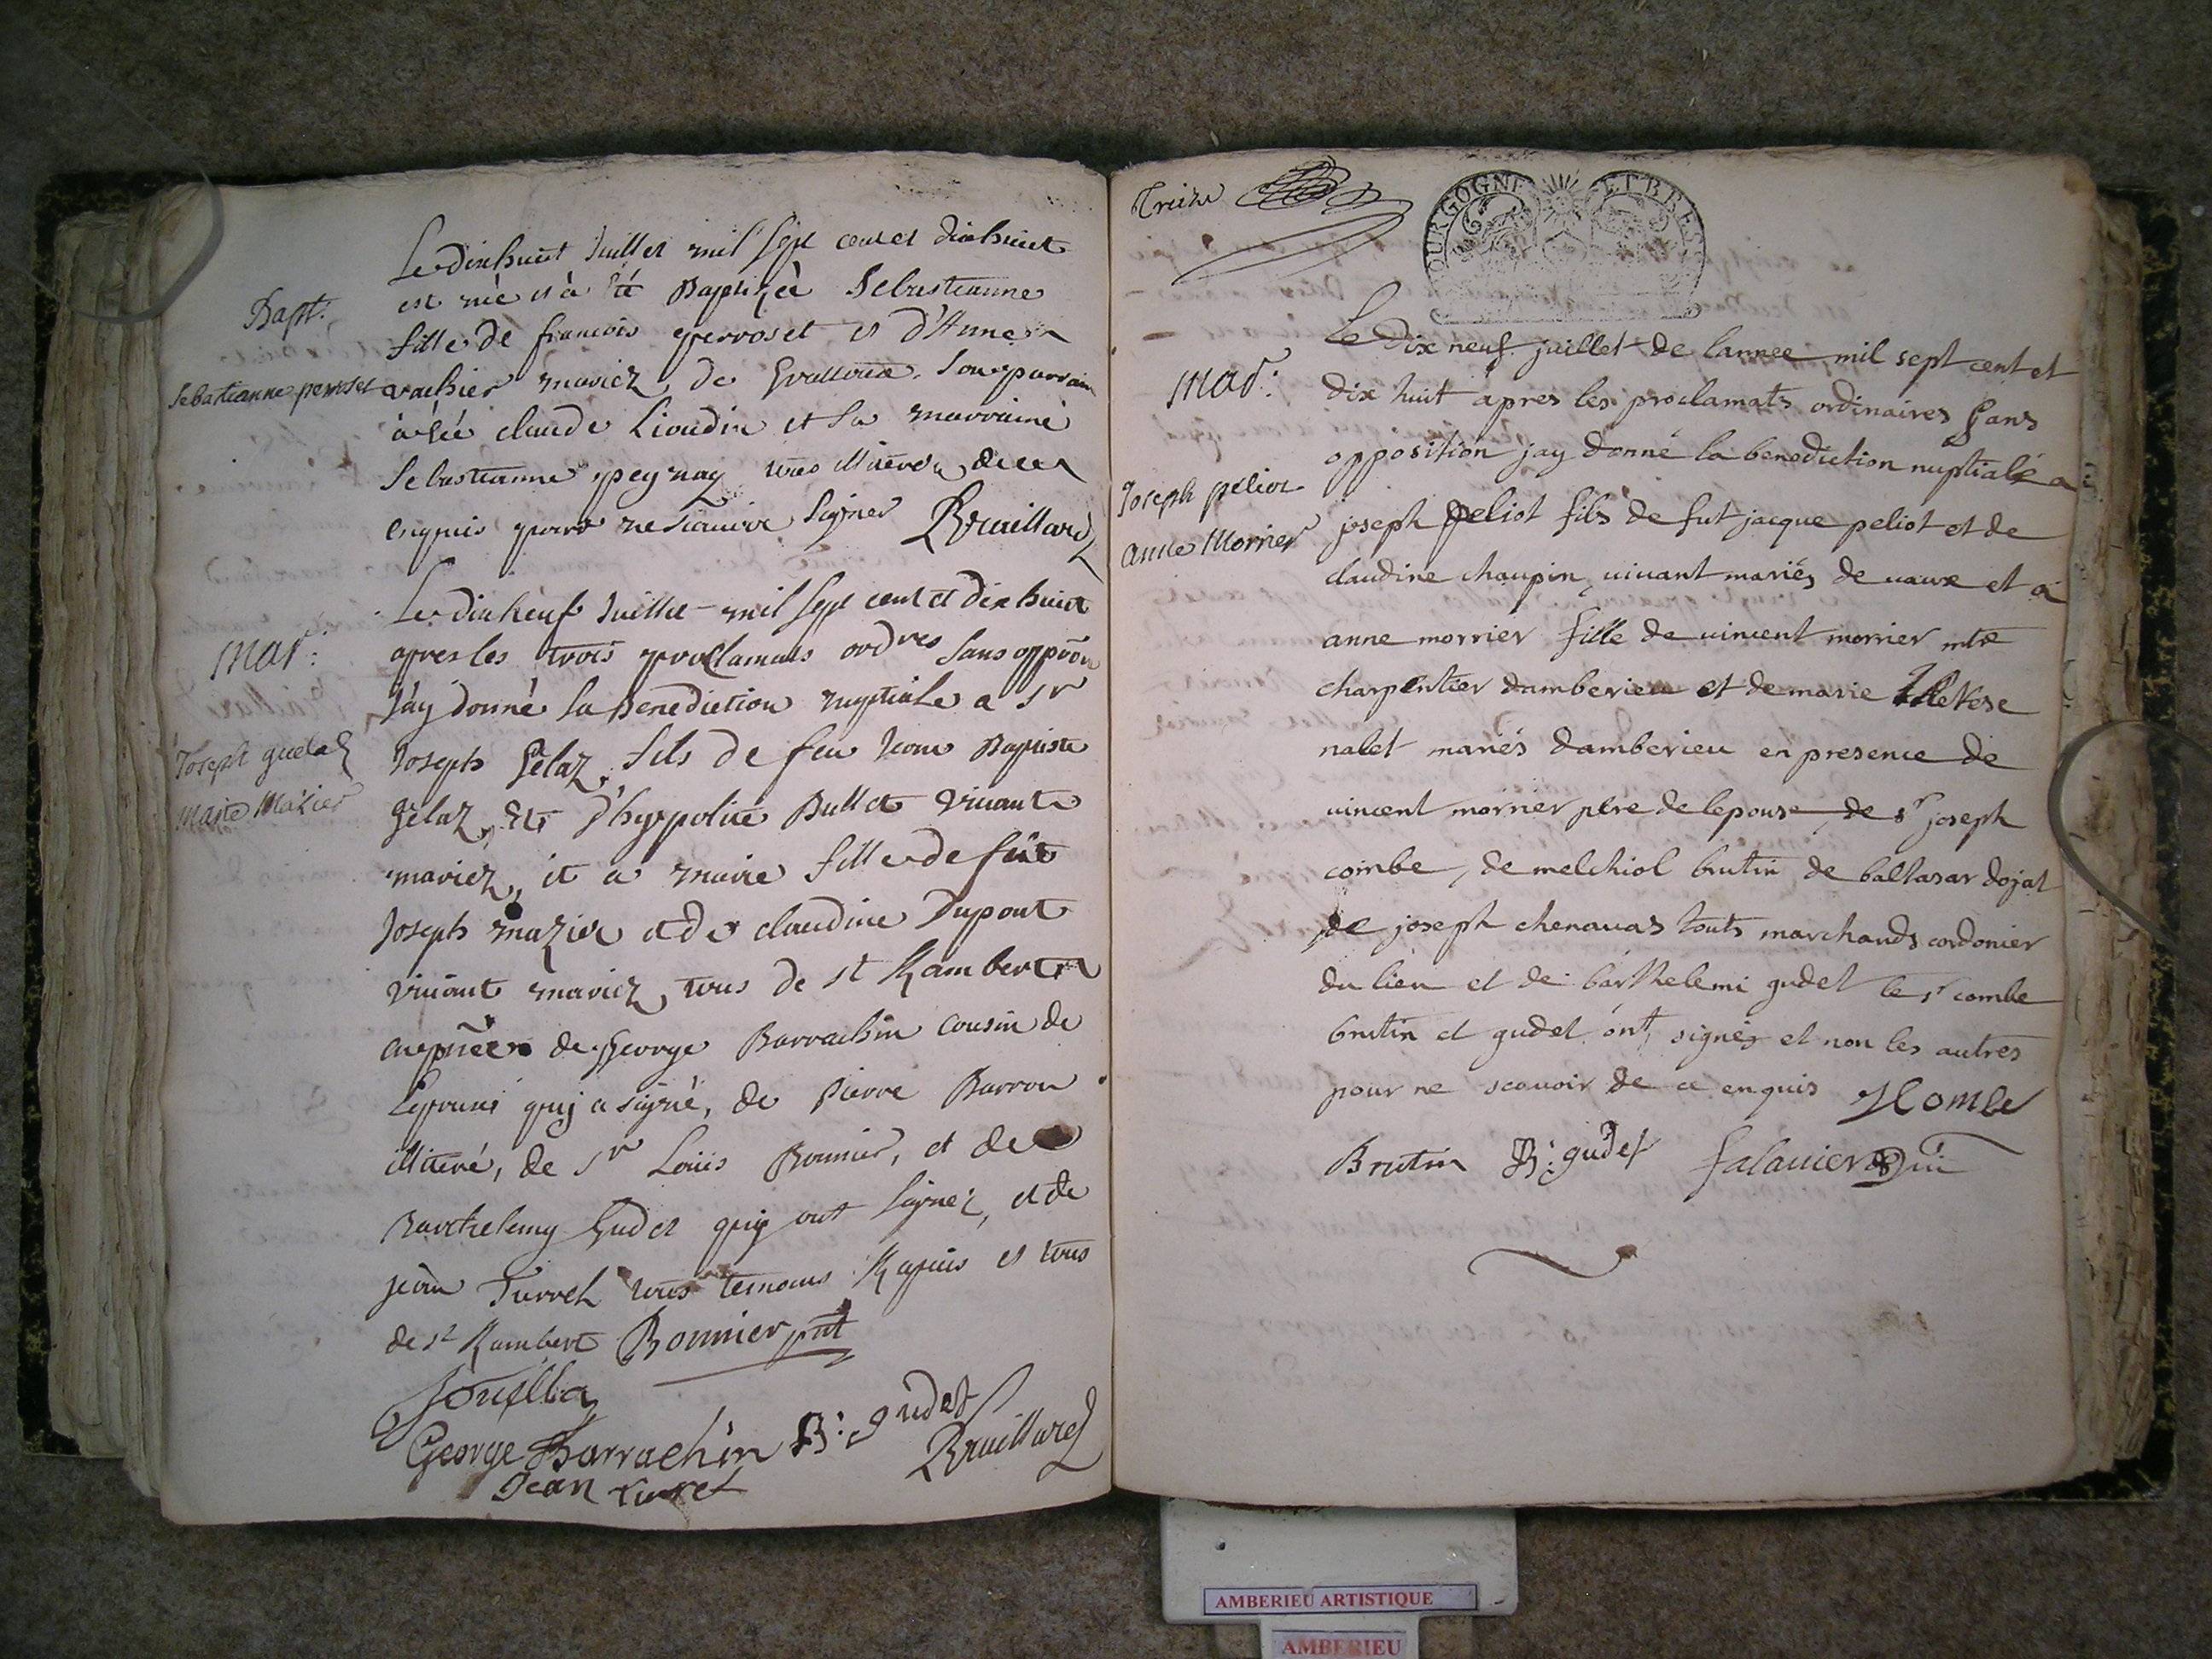 Bapt:
Sebastianne perroset
Le dixhuit Juillet mil sept cent et dixhuict
est née et à été Baptizeé Sebastianne
fille de francois perroset et d'Anne
vachier mariez, de Son parrain
à été claude Lioudin et sa marraine
Sebastianne peynay tous illiterés de ce
enquis pour ne scauoir signer Bruillard
mar:
Joseph guelaz
Marie Mazier
Le dixneuf Juillet mil sept cent et dix huict
apres les trois proclamats ordres sans oppõon
J'ay donné la Benediction nuptiale a Sr
Joseph Gelaz, fils de feu Jean Baptiste
Gelaz, Et d'hyppolite Bullet viuant
mariez, et a marie fille de fut
Joseph mazier et de claudine Dupont
viuant mariez, tous de st Rambert
en pñce de George Barrachin cousin de
L'epouse quj a signé, de Pierre Barron
illiteré, de Sr Loüis Bonnier, et de
Barthelemy Gudet quj ont signez, et de
jean Turrel tous temoins Requis et tous
de st Rambert Bonnier pñt
George Barrachin B: gudet
Bruillard
Jean turel
Treize
BOURGOGNE ET BRESSE
mar:
Joseph peliot
anne Morrier
Le dix neuf juillet de lannee mil sept cent et
dix huit apres les proclamats ordinaires sans
opposition jay donné la benediction nuptiale a
joseph peliot fils de fut jacque peliot et de
claudine chaupin, uiuant mariés de uaux et a
anne morrier fille de uincent morrier mtre
charpentier damberieu et de marie therese
nalet mariés damberieu en presence de
uincent morrier pere de lepouse de sr joseph
combe, de melchiol brutin de baltasar dojat
de joseph chenauas touts marchands cordonier
du lieu et de barthelemi gudet le sr combe
brutin et gudet ont signés et non les autres
pour ne scauoir de ce enquis JCombe
Brutin B: gudet
AMBERIEU ARTISTIQUE
AMBERIEU